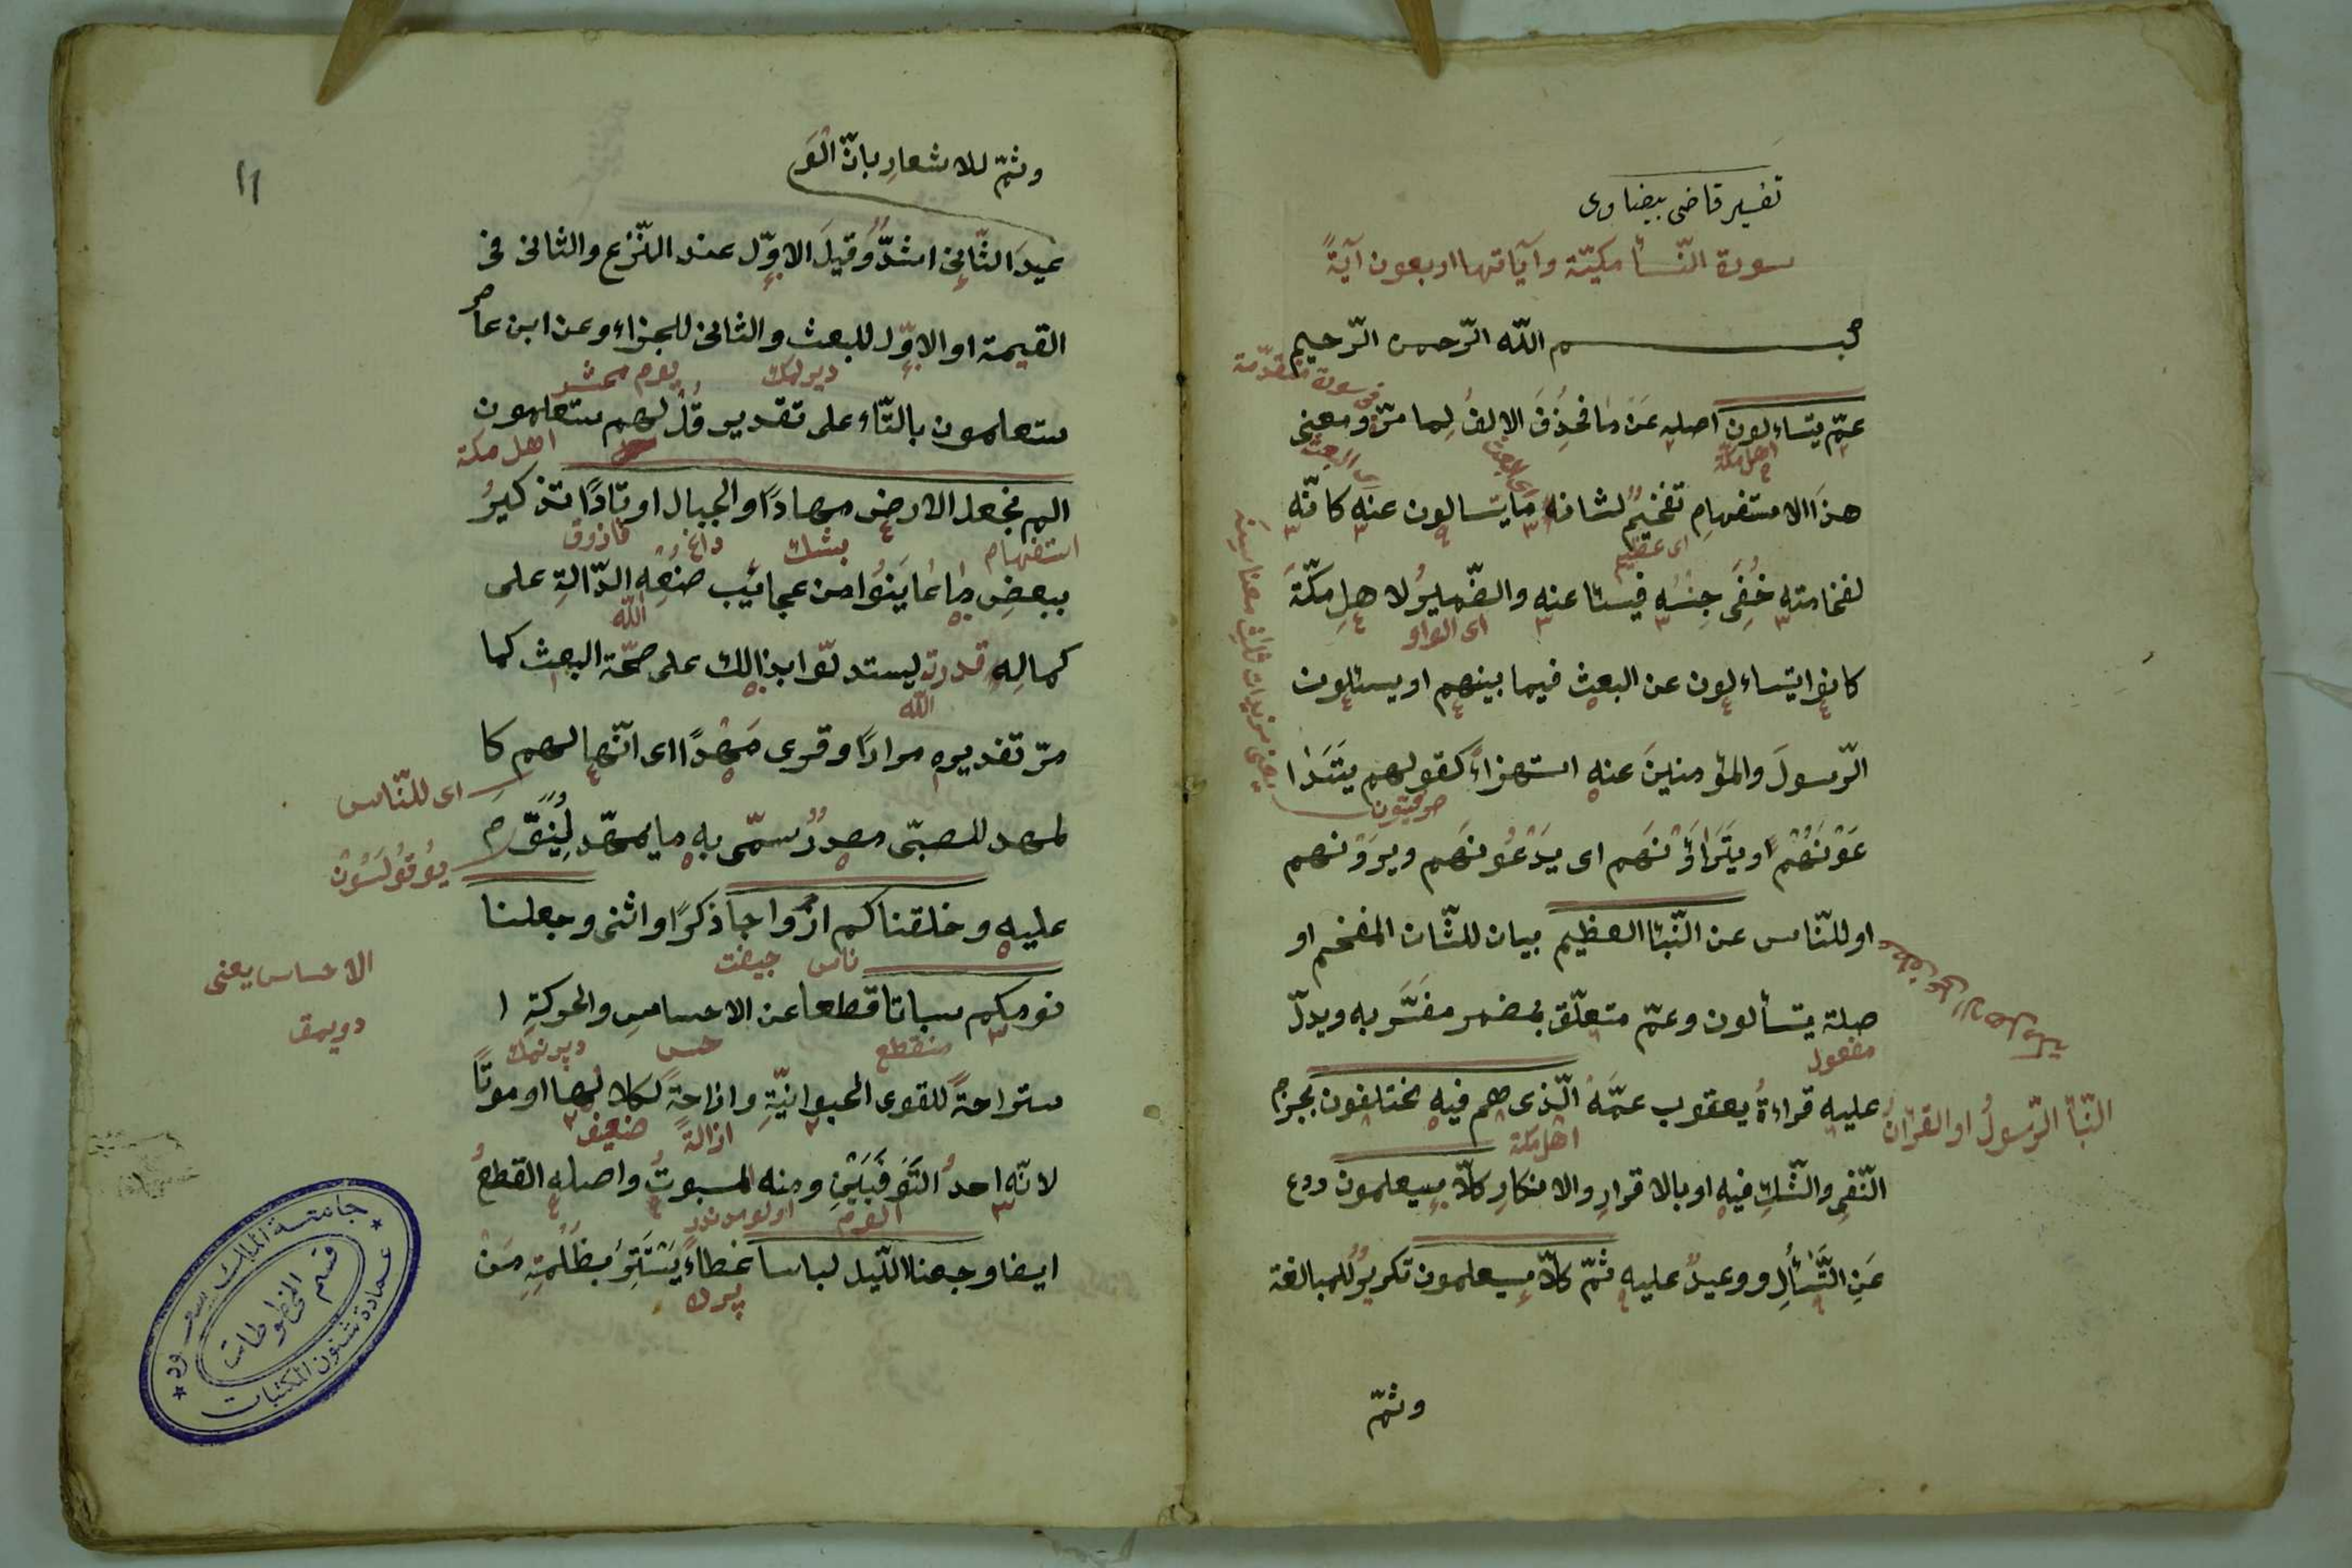 تفسير قاضى بيضاوى
سورة النّبأ مكيّة وآياتها اربعون آيةً
بسم اللّه الرّحمن الرّحيم
فى سورة متقدّمة
عمّ يتساءلون اصله عَنْ مٰا فحُذِفَ الالفُ لِما مرّ ومعنى
اهل مكّة
هذَا الاستفهامِ تفخيمٌ لشانه مٰا يتسالون عنه كانّه
اى عظيم
لفخامته خُفِىَ جِنْسُه فيسئا عنه والضّميرُ لاهلِ مكّةَ
اى الواو
كانوا يتساءلون عن البعث فيما بينهم او يسئلون
الرّسولَ والمؤمنينَ عنه استهزاءً كقولهم يتَدٰا
عَوْنَهُمْ او يتَرَاؤَنَهم اى يَدْعُونَهم ويرَوْنهم
او للنّاس عن النّبئا العظيم بيان للشّان المفخم او
صلة يتسألون وعمّ متعلّق بمضمر مفسَّر به ويدلّ
مفعول
عليه قراءةُ يعقوب عمَّهْ الّذى هم فيه مختلفون بجزم
النّبأ الرّسولُ او القرآن
اهل مكة
النّفىِ والشّكِّ فيه او بالاقرارِ والانكارِ كلّا سيعلمون ردع
عَنِ التَّسٰأُلِ ووعيدٌ عليه ثمّ كلّا سيعلمون تكريرٌ للمبالغة
وثمّ
١١
وثمّ للاشعارِ بانّ الوَ
عيدَ الثّانى اشدُّ وقيلَ الاوّل عند النّزع والثانى فى
القيمة او الاوّل للبعث والثانى للجزاء وعن ابن عامر
يوم محشر
ستعلمون بالتّاء على تقدير قُلْ لهم ستعلمون
اهل مكة
الم نجعل الارض مهادًا والجبال اوتادًا تذكيرُ
استفهام بشك قازوق
ببعضِ مٰا عٰايَنوُا من عجائب صنعِه الدّالةِ على
اللّه
كمالِه قدرت ليستدلّوا بذالك على صحّة البعث كما
اللّه
مرّ تقديره مرارًا وقرى مَهْدًا اى انّها لهم كا
اى للنّاس
لمهد للصبىّ مصدرٌ سمّى به ما يمهّد لِيُنَوَّمَ
عليه وخلقناكم ازواجا ذكرًا وانثى وجعلنا
ناس جيفت
الاحساس يعنى
نومكم سباتا قطعا عن الاحساسِ والحركةِ ا
دويمق
منقطع حس
ستراحةً للقوى الحيوانيّةِ وازاحةً لكلالها او موتًا
ازالةً ضعيف
لانّه احدُ التَّوَفِّيَيْنِ ومنه المسبوتُ واصله القطعُ
ايضا وجعلنا اللّيل لباسا غطاءً يَسْتَتِرُ بظُلْمَتِهِ مَنْ
پرده
جامعة الملك سعود
قسم المخطوطات
عمادة شئون المكتبات